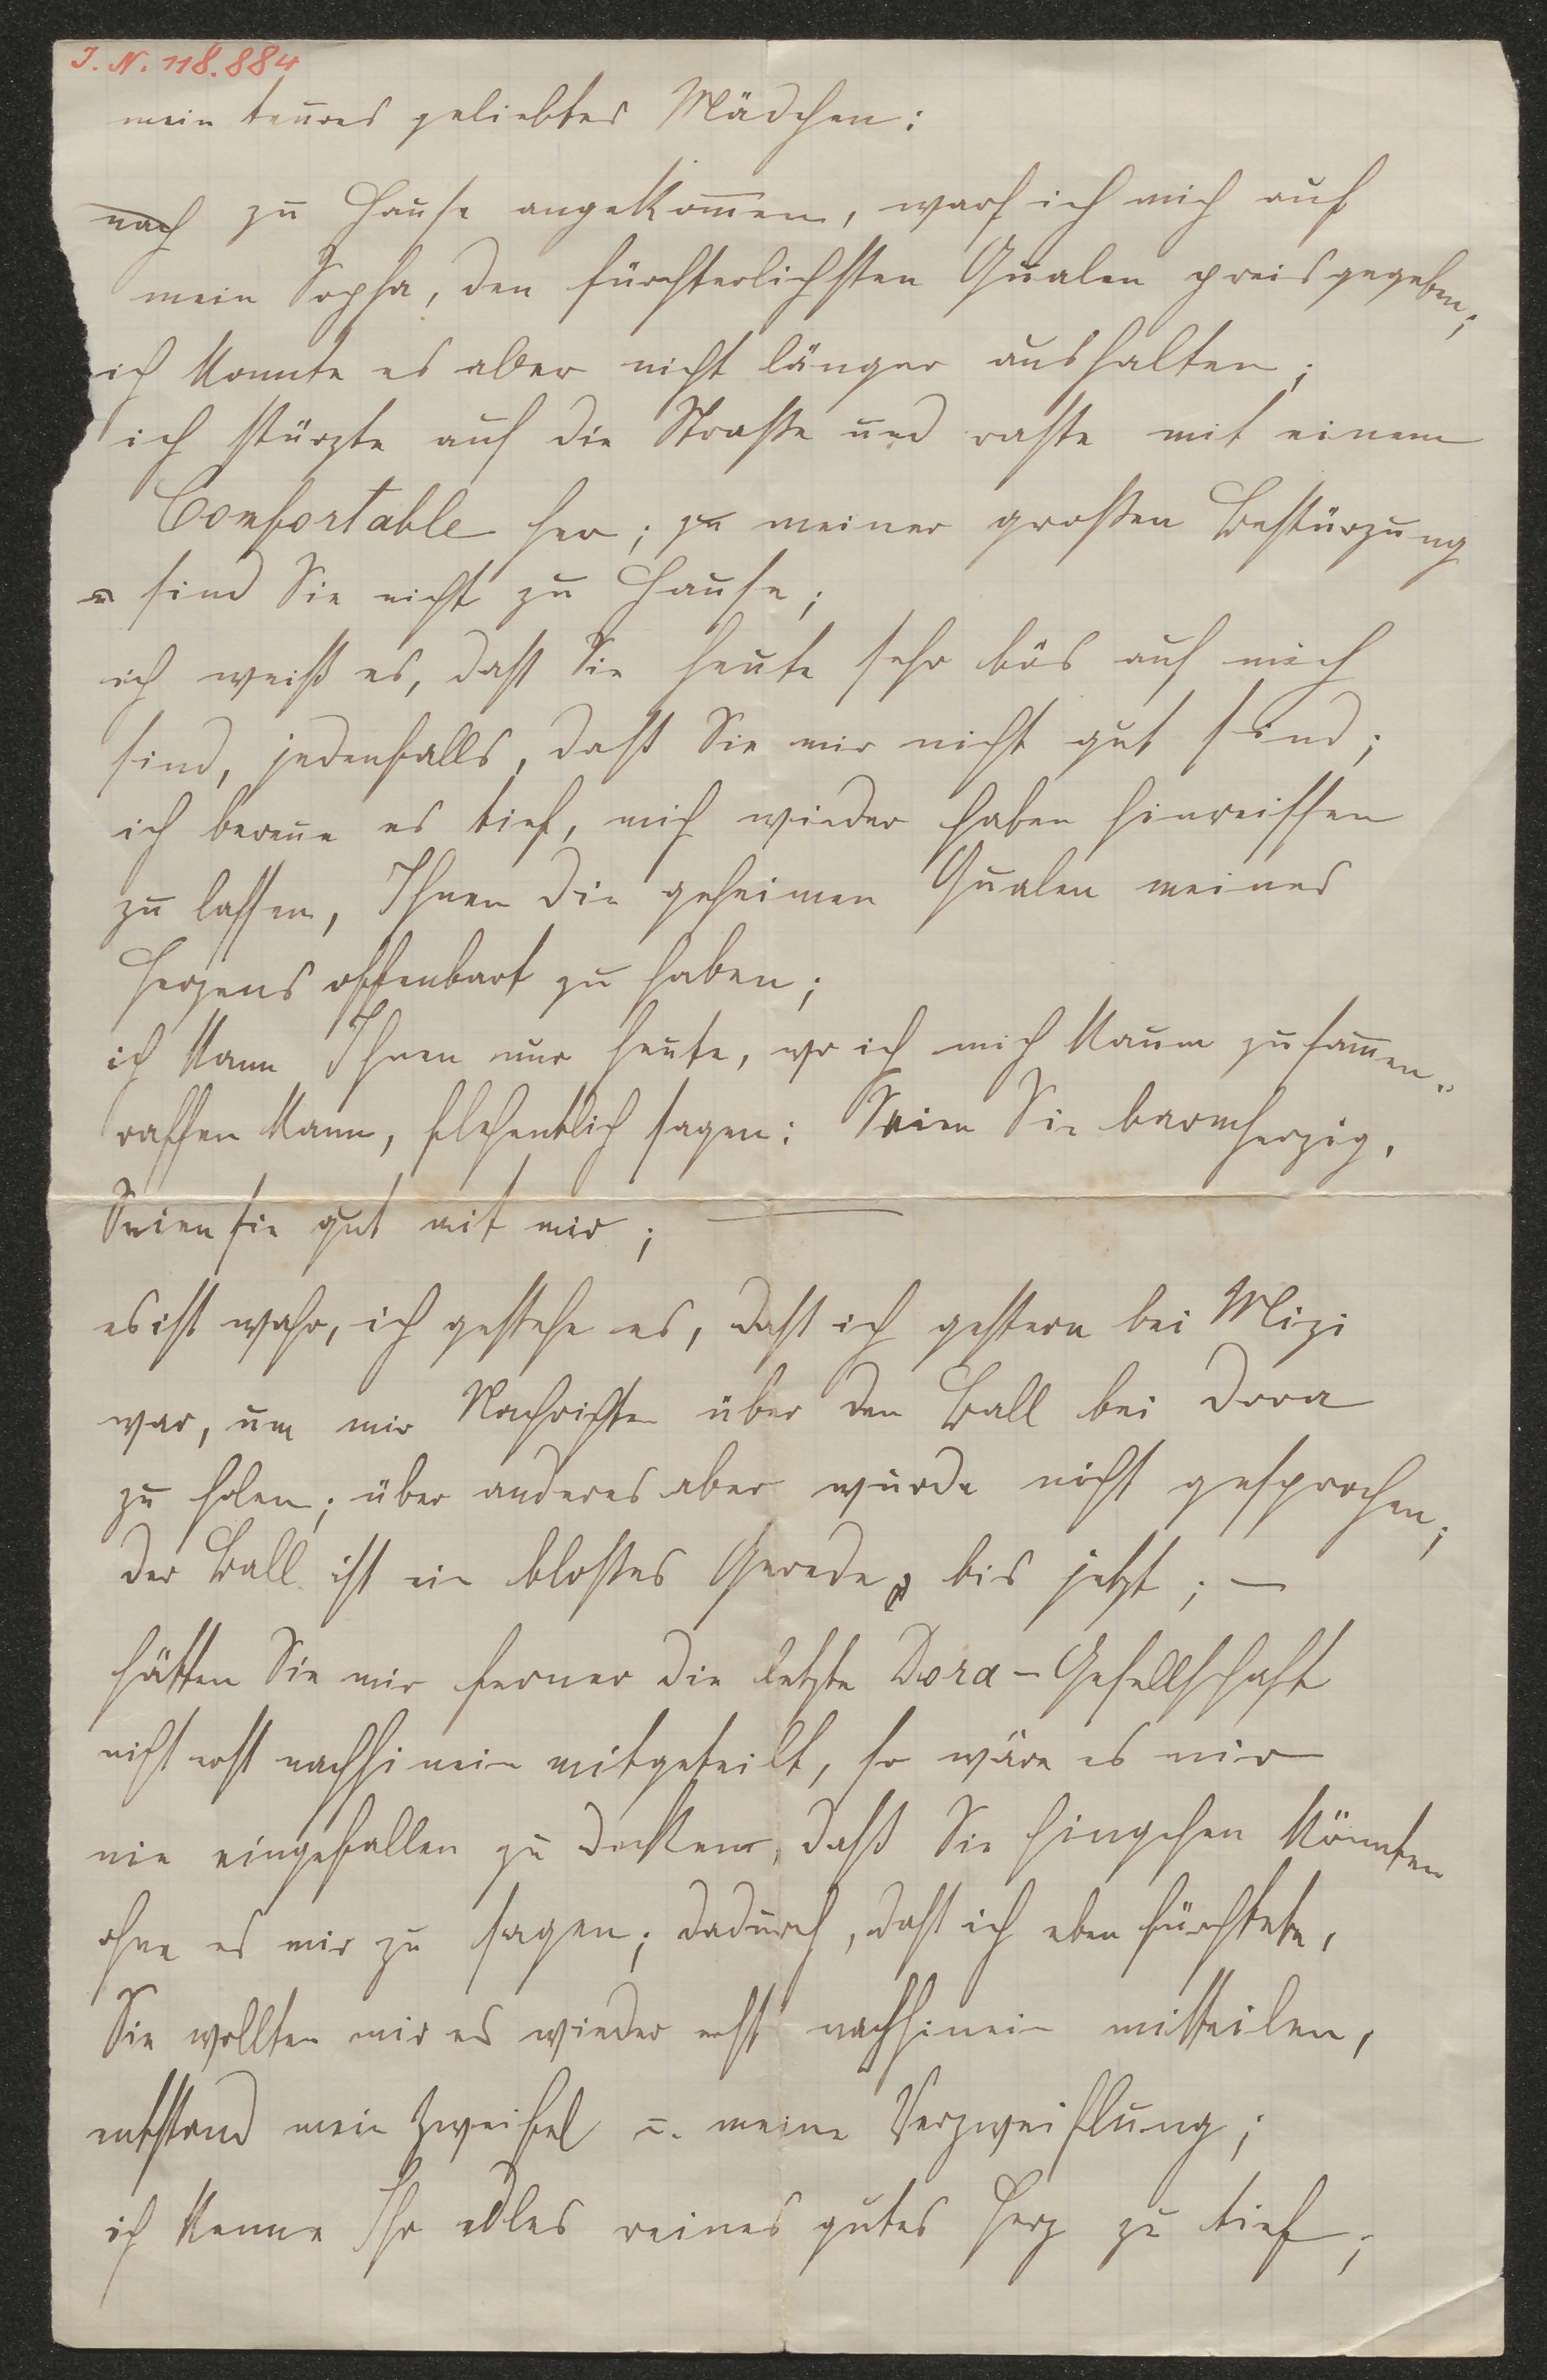 I. N. 118.884
mein teures geliebtes Mädchen:
nach zu Hause angekommen, warf ich mich auf
mein Sopha, den fürchterlichsten Qualen preisgegeben;
ich konnte es aber nicht länger aushalten;
ich stürzte auf die Straße und raste mit einem
Comfortable her; zu meiner großen Bestürzung
sind Sie nicht zu Hause;
ich weiß es, daß Sie heute sehr bös auf mich
sind, jedenfalls, daß Sie mir nicht gut sind;
ich bereue es tief, mich wieder haben hinreissen
zu lassen, Ihnen die geheimen Qualen meines
Herzens offenbart zu haben;
ich kann Ihnen nur heute, wo ich mich kaum zusammen-
raffen kann, flehentlich sagen: Seien Sie barmherzig,
Seien sie gut mit mir; —
es ist wahr, ich gestehe es, daß ich gestern bei Mizi
war, um mir Nachrichten über den Ball bei Dora
zu holen; über anderes aber wurde nicht gesprochen;
der Ball ist ein bloßes Gerede, bis jetzt; —
hätten Sie mir ferner die letzte Dora-Gesellschaft
nicht erst nachhinein mitgeteilt, so wäre es mir
nie eingefallen zu denken, daß Sie hingehen könnten
ohne es mir zu sagen; dadurch, daß ich eben fürchtete,
Sie wollten mir es wieder erst nachhinein mitteilen,
entstand mein Zweifel u. meine Verzweiflung;
ich kenne Ihr edles reines gutes Herz zu tief;